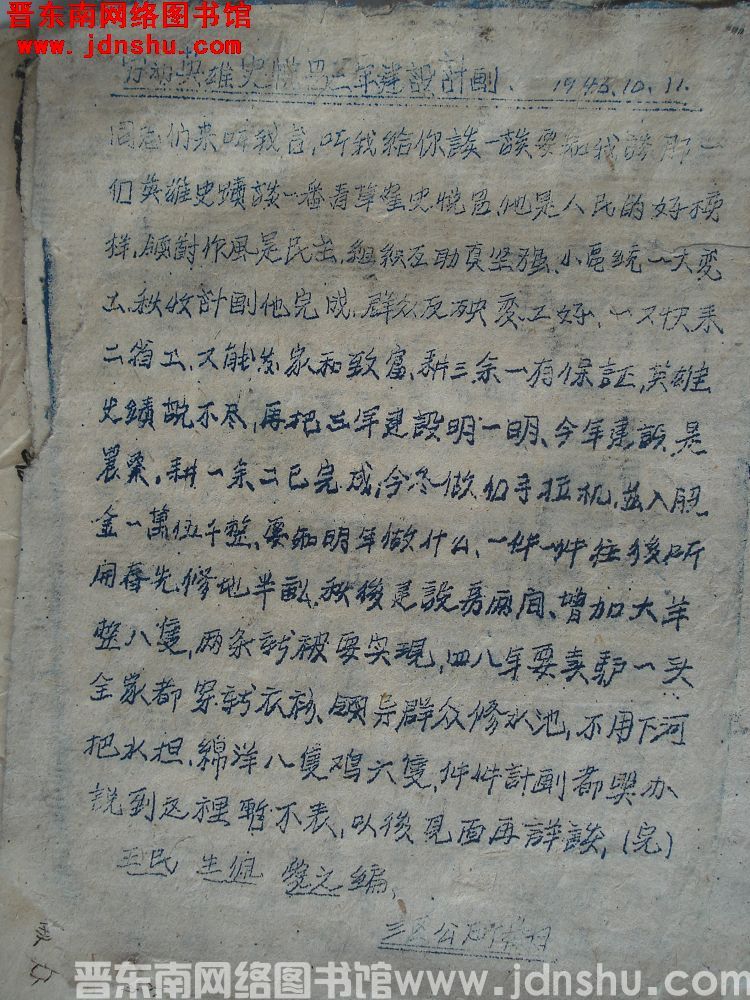 晋东南网络图书馆
www.jdnshu.com
劳动英雄史悦昌三年建設計劃、1946.10.11.
同志们来听我言,听我給你談一談要知我談那一
们英雄史蹟談一番青草崔史悦昌,他是人民的好榜
样,領對作風是民主,組织互助真坚强、小區統一大变
工、秋收計劃他完成,群众反映变工好、一又快来
二省工,又能發家和致富,耕三余一有保証,英雄
史蹟説不尽,再把三年建設明一明、今年建設是
農業,耕一余二已完成,今冬做们手拉机,並入股
金一萬伍千整、要知明年做什么、一件一件往後听
開春先修地半畝,秋後建設房兩间、增加大羊
整八隻,两条新被要实現,四八年要卖驴一头
全家都穿新衣衫、領导群众修水池,不用下河
把水担,綿洋八隻鸡六隻,件件計劃都興办
説到这裡暫不表,以後見面再詳談,(完)
王民 生 之編、
三区公所
晋东南网络图书馆 www.jdnshu.com